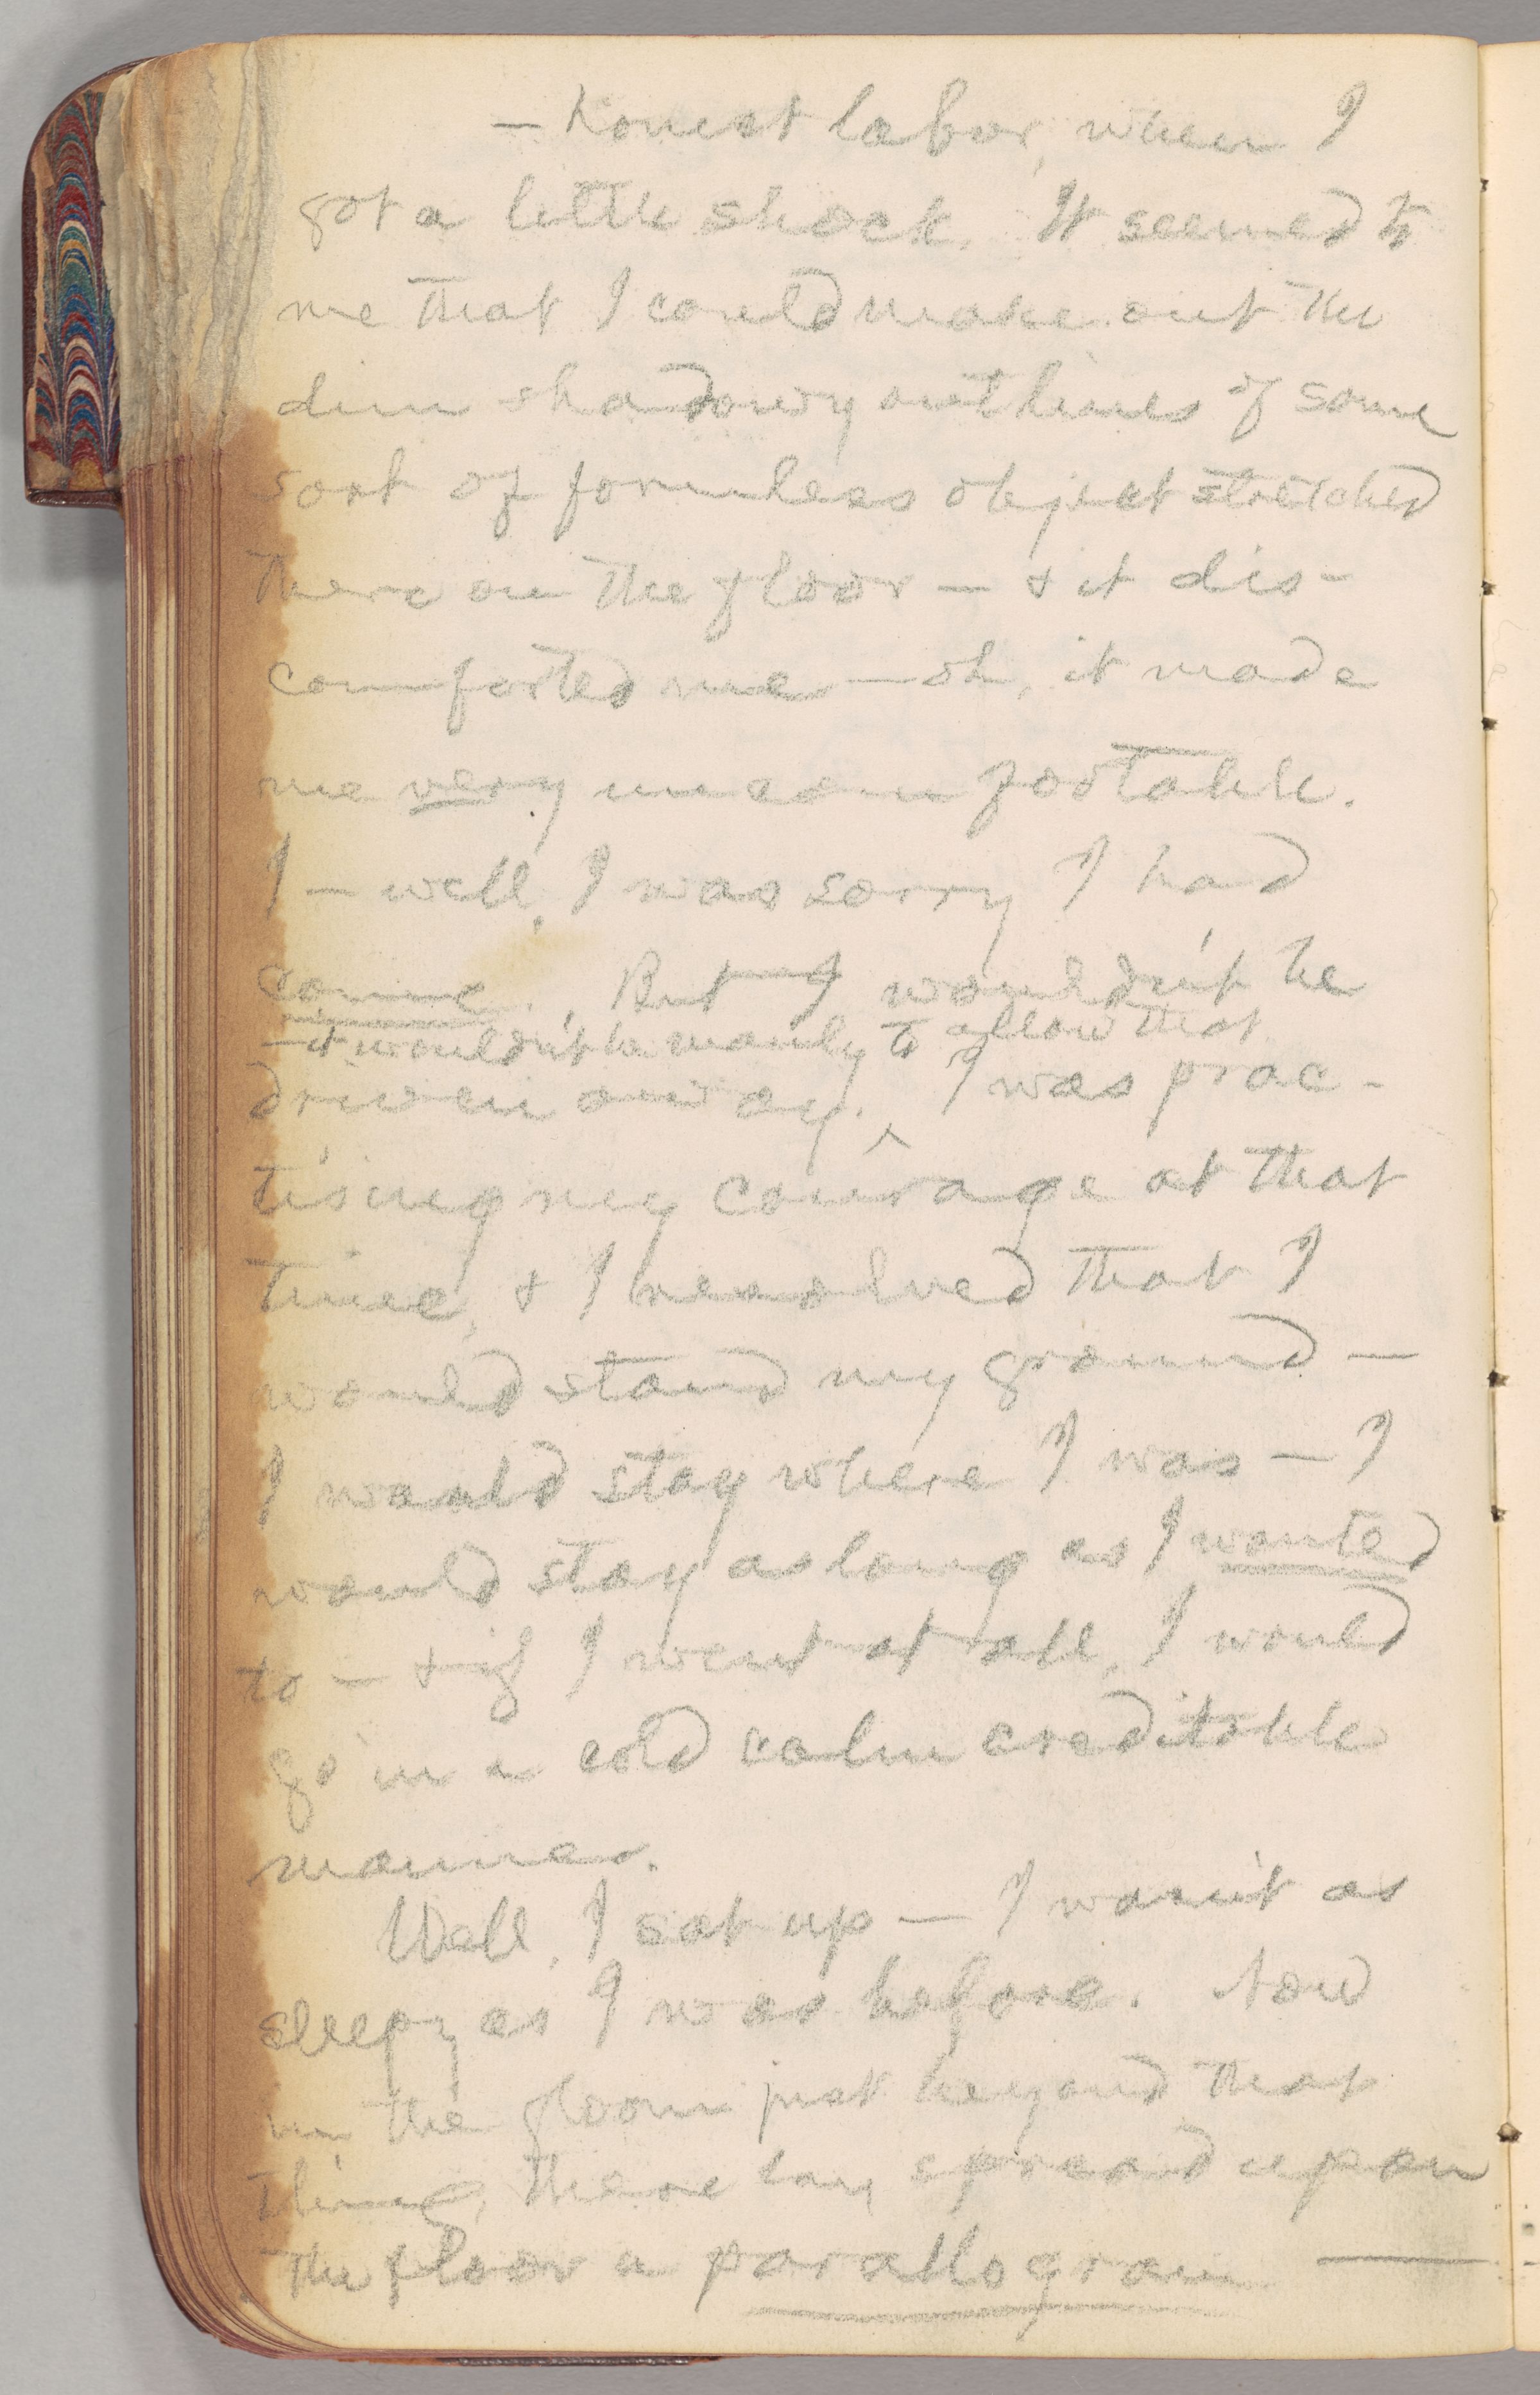 — honest labor, when I
got a little shock. It seemed to
me that I could make out the
dim shadowy outlines of some
sort of formless object stretched
there on the floor — & it dis-
comforted me — oh, it made
me very uncomfortable.
I — well, I was sorry I had
come. But I wouldn't be
— it wouldn't be manly to allow that
driven away. ^ I was prac-
tising my courage at that
time, & I resolved that I
would stand my ground —
I would stay where I was — I
would stay as long as I wanted
to — & if I went at all, I would
go in a cold calm creditable
manner.
Well, I sat up — I wasn't as
sleepy as I was before. Now
in the gloom just beyond that
thing, there lay spread upon
the floor a parallogram —